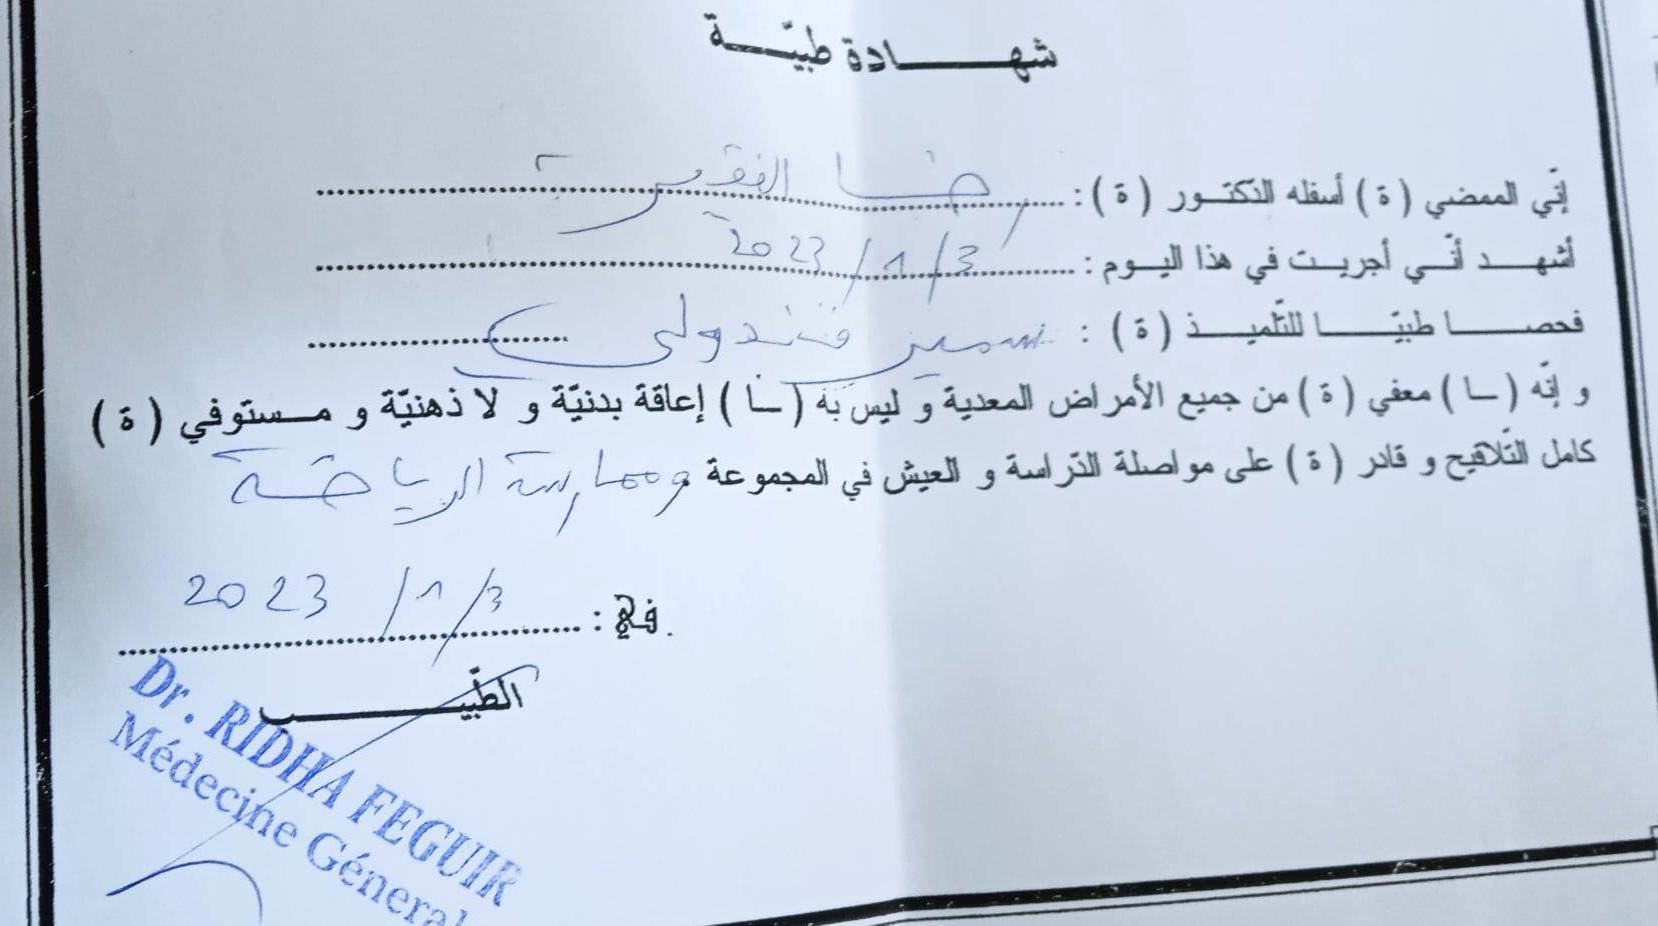 شهادة طبيّة
إنّي الممضي ( ة ) أسفله الدّكتور ( ة ) : رضا الفقير
أشهد أنّي أجريت في هذا اليوم : 3/1/2023
فحصا طبيّا للتّلميذ ( ة ) : سمير قندولي
و إنّه ( ـا ) معفي ( ة ) من جميع الأمراض المعدية و ليس به ( ـا ) إعاقة بدنيّة و لا ذهنيّة و مستوفي ( ة )
كامل التّلاقيح و قادر ( ة ) على مواصلة الدّراسة و العيش في المجموعة وممارسة الرياضة
في : 3/1/2023
الطّبيب
Dr. RIDHA FEGUIR
Médecine Général